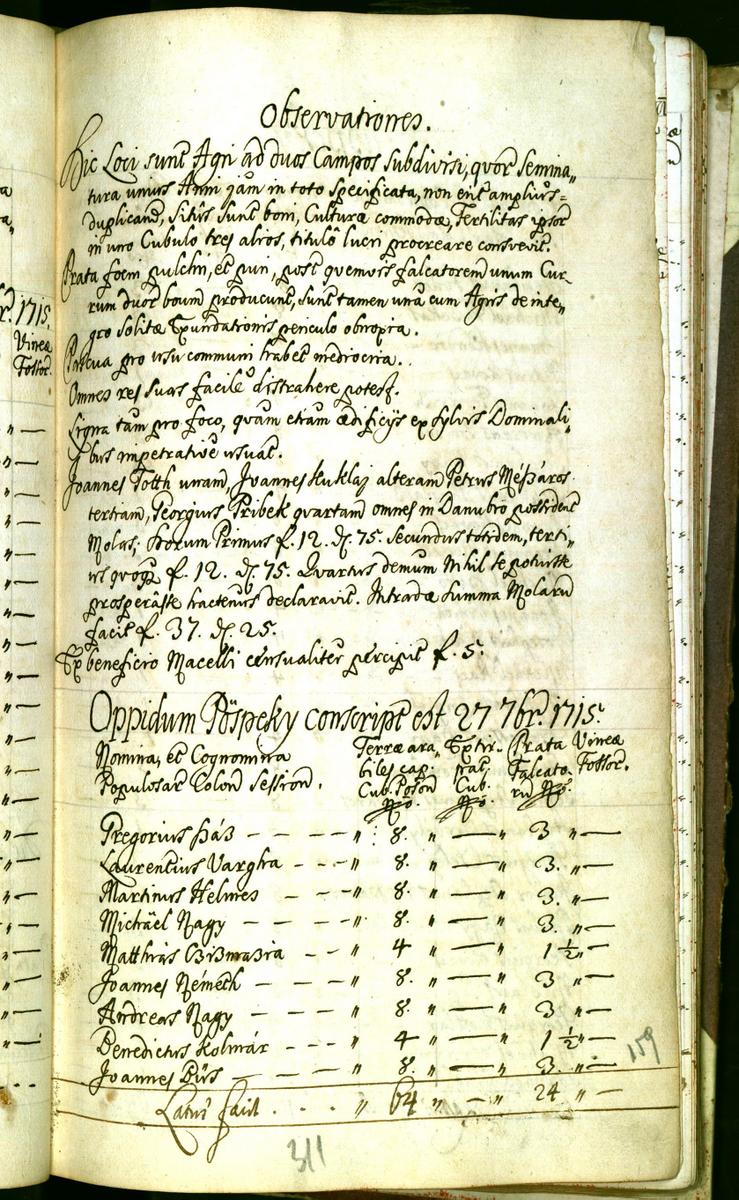 Observationes.
Hic Loci sunt Agri ad duos Campos subdivisi, quor Semina„
tura unius Anni jam in toto specificata, non erit amplius=
duplicand, Situs sunt boni, Culturæ commodæ, Fertilitas ipsor
in uno Cubulo tres alios, titulô lucri procreare consvevit.
Prata foeni pulchri, et puri, post quemvis falcatorem unum Cur„
rum duor boum producunt, sunt tamen unà cum Agris de inte„
gro solitæ Exundationis periculo obnoxia.
Pascua pro usu communi habet mediocria.
Omnes res suas facile distrahere potest.
Ligna tam pro foco, quam etiam ædificijs ex sylvis Dominali„
bus impetrativè usuat.
Joannes Totth unam, Joannes Kuklaj alteram Petrus Mészáros
tertiam, Georgius Pribek quartam omnes in Danubio possident
Molas; Horum Primus f. 12. d. 75. Secundus totidem, terti„
us quoq f. 12. d. 75. Quartus demum Nihil se potuisse
prosperâsse hactenus declaravit. Intradæ Summa Molaru
facit f. 37. d. 25.
Ex beneficio Macelli censualiter percipit f. 5.
Oppidum Püspeky conscript est 27 7br. 1715.
Nomina, et Cognomina
Populosar Colon Session.
Terræ ara„
biles cap.
Cub. Poson
Extir„
pat.
Cub.
Prata
Falcato„
ru
Vineæ
Fossor.
Gregorius Ház — — — „ : 8. „ — „ 3 „ —
Laurentius Vargha - - - „ 8. „ — „ 3. „ —
Martinus Helmes - — - „ 8. „ — „ 3. „ —
Michäel Nagy — — — „ 8. „ — „ 3. „ —
Matthias Csizmazia - - „ 4 „ — „ 1 ½ „ —
Joannes Németh — — — „ 8. „ — „ 3 „ —
Andreas Nagy — — — „ 8. „ — „ 3 „ —
Benedictus Kolmár - - - „ 4 „ — „ 1 ½ „ —
Joannes Bús — — — „ 8. „ — „ 3. „ —
Latus facit . . . . „ 64 „ — „ 24 „ —
159
311
br. 1715.
Vineæ
Fossor.